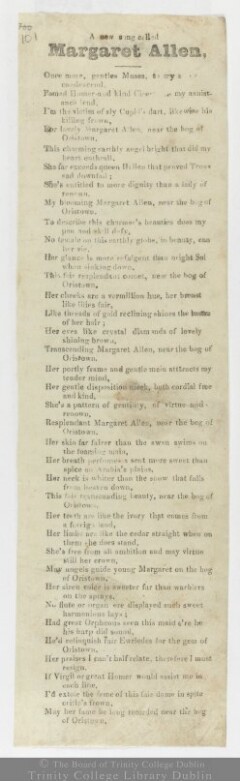 A new song called
Margaret Allen,
Once more, gentles Muses,
condescend,
Famed Homer and kind my assist-
ance lend,
I'm the victim of sly Cupid's dart, his
killing frown,
She lovely Margaret Allen, near the bog of
Oristown,
This charming earthly angel bright that did my
heart enthrall,
She far exceeds queen Helen that proved Troys
sad downfall;
She's entitled to more dignity than a lady of
renown,
My blooming Margaret Allen, near the bog of
Oristown,
To describe this charmer's beauties does my
pen and skill defy,
No female on this earthly globe, in beauty, can
her vie,
Her glance is more refulgent than bright Sol
when sinking down,
This fair resplendant comet, near the bog of
Oristown,
Her cheeks are a vermillion hue, her breast
like lilies fair,
Like threads of gold reclining shines the
of her hair;
Her eyes like crystal diamonds of lovely
shining brown,
Transcending Margaret Allen, near the bog of
Oristown,
Her portly frame and gentle mein attracts my
tender mind,
Her gentle disposition both cordial free
and kind,
She's a pattern of geniuty, of virtue and
renown,
Resplendant Margaret Allen, near the bog of
Oristown,
Her skin far fairer than the swan swims on
the foaming main,
Her breath perfumes a scent more sweet than
spice on Arabia's plains,
Her neck is whiter than the snow that falls
from heaven down,
This fair transcending beauty, near the bog of
Oristown,
Her teeth are like the ivory that comes from
a foreign land,
Her limbs are like the cedar straight when on
them she does stand,
She's free from all ambition and may virtue
still her crown,
May angels guide young Margaret on the bog
of Oristown,
Her siren voice is sweeter far than warblers
on the sprays,
No flute or organ ever displayed such sweet
harmonious lays;
Had great Orpheous seen this maid e're he
his harp did sound,
He'd relinquish fair Euridice for the gem of
Oristown,
Her praises I can't half relate, therefore I must
resign,
If Virgil or great Homer would assist me in
each line,
I'd extoir the fame of this fair dame in spite
critic's frown,
May her fame be long recorded near the bog
of Oristown,
© The Board of Trinity College Dublin
Trinity College Library Dublin